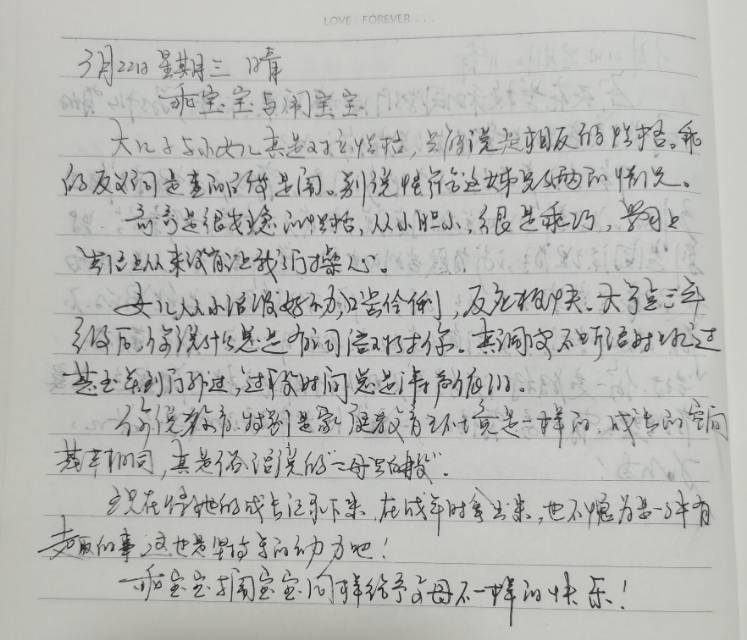 LOVE · FOREVER ...
3月22日 星期三 晴
乖宝宝与闹宝宝
大儿子与小女儿真是对立性格，只能说是相反的性格。乖
的反义词是查的是闹。别说性符合这姊兄俩的情况。
奇奇是很安稳的性格，从小胆小，很是乖巧，学习上
生活上从来没有让我们操心。
女儿从小活泼好动，口齿伶俐，反应极快。大了上三年
级后，你说什么总是有词语对付你。真调皮不听话时上过
甚至弄到门外过，过段时间总是
你说教育特别是家庭教育环境是一样的，成长的空间
基本相同，真是俗话说的“一母
现在将她的成长记录下来，在成年时拿出来，也不愧为是一件有
趣的事，这也是坚持写的动力吧！
乖宝宝与闹宝宝同样给予父母不一样的快乐！